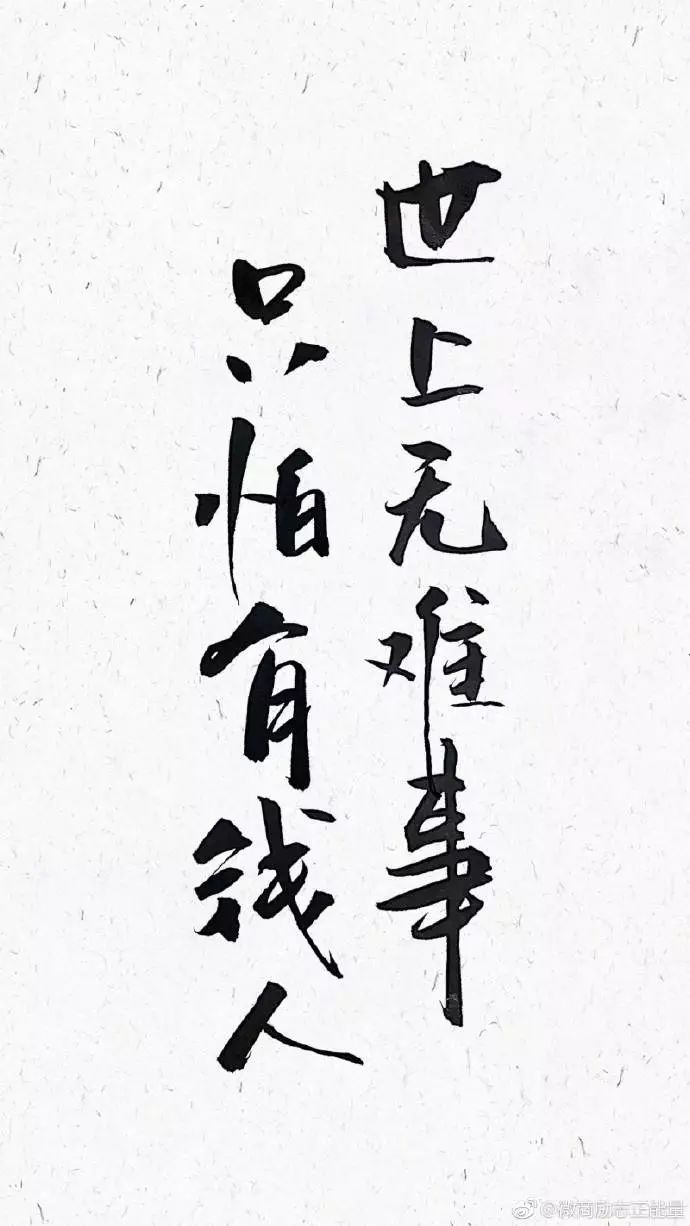 世上无难事
只怕有钱人
@微商励志正能量